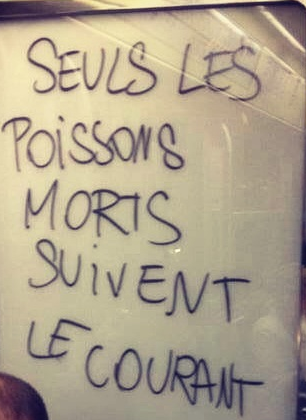 SEULS LES
POISSONS
MORTS
SUIVENT
LE COURANT